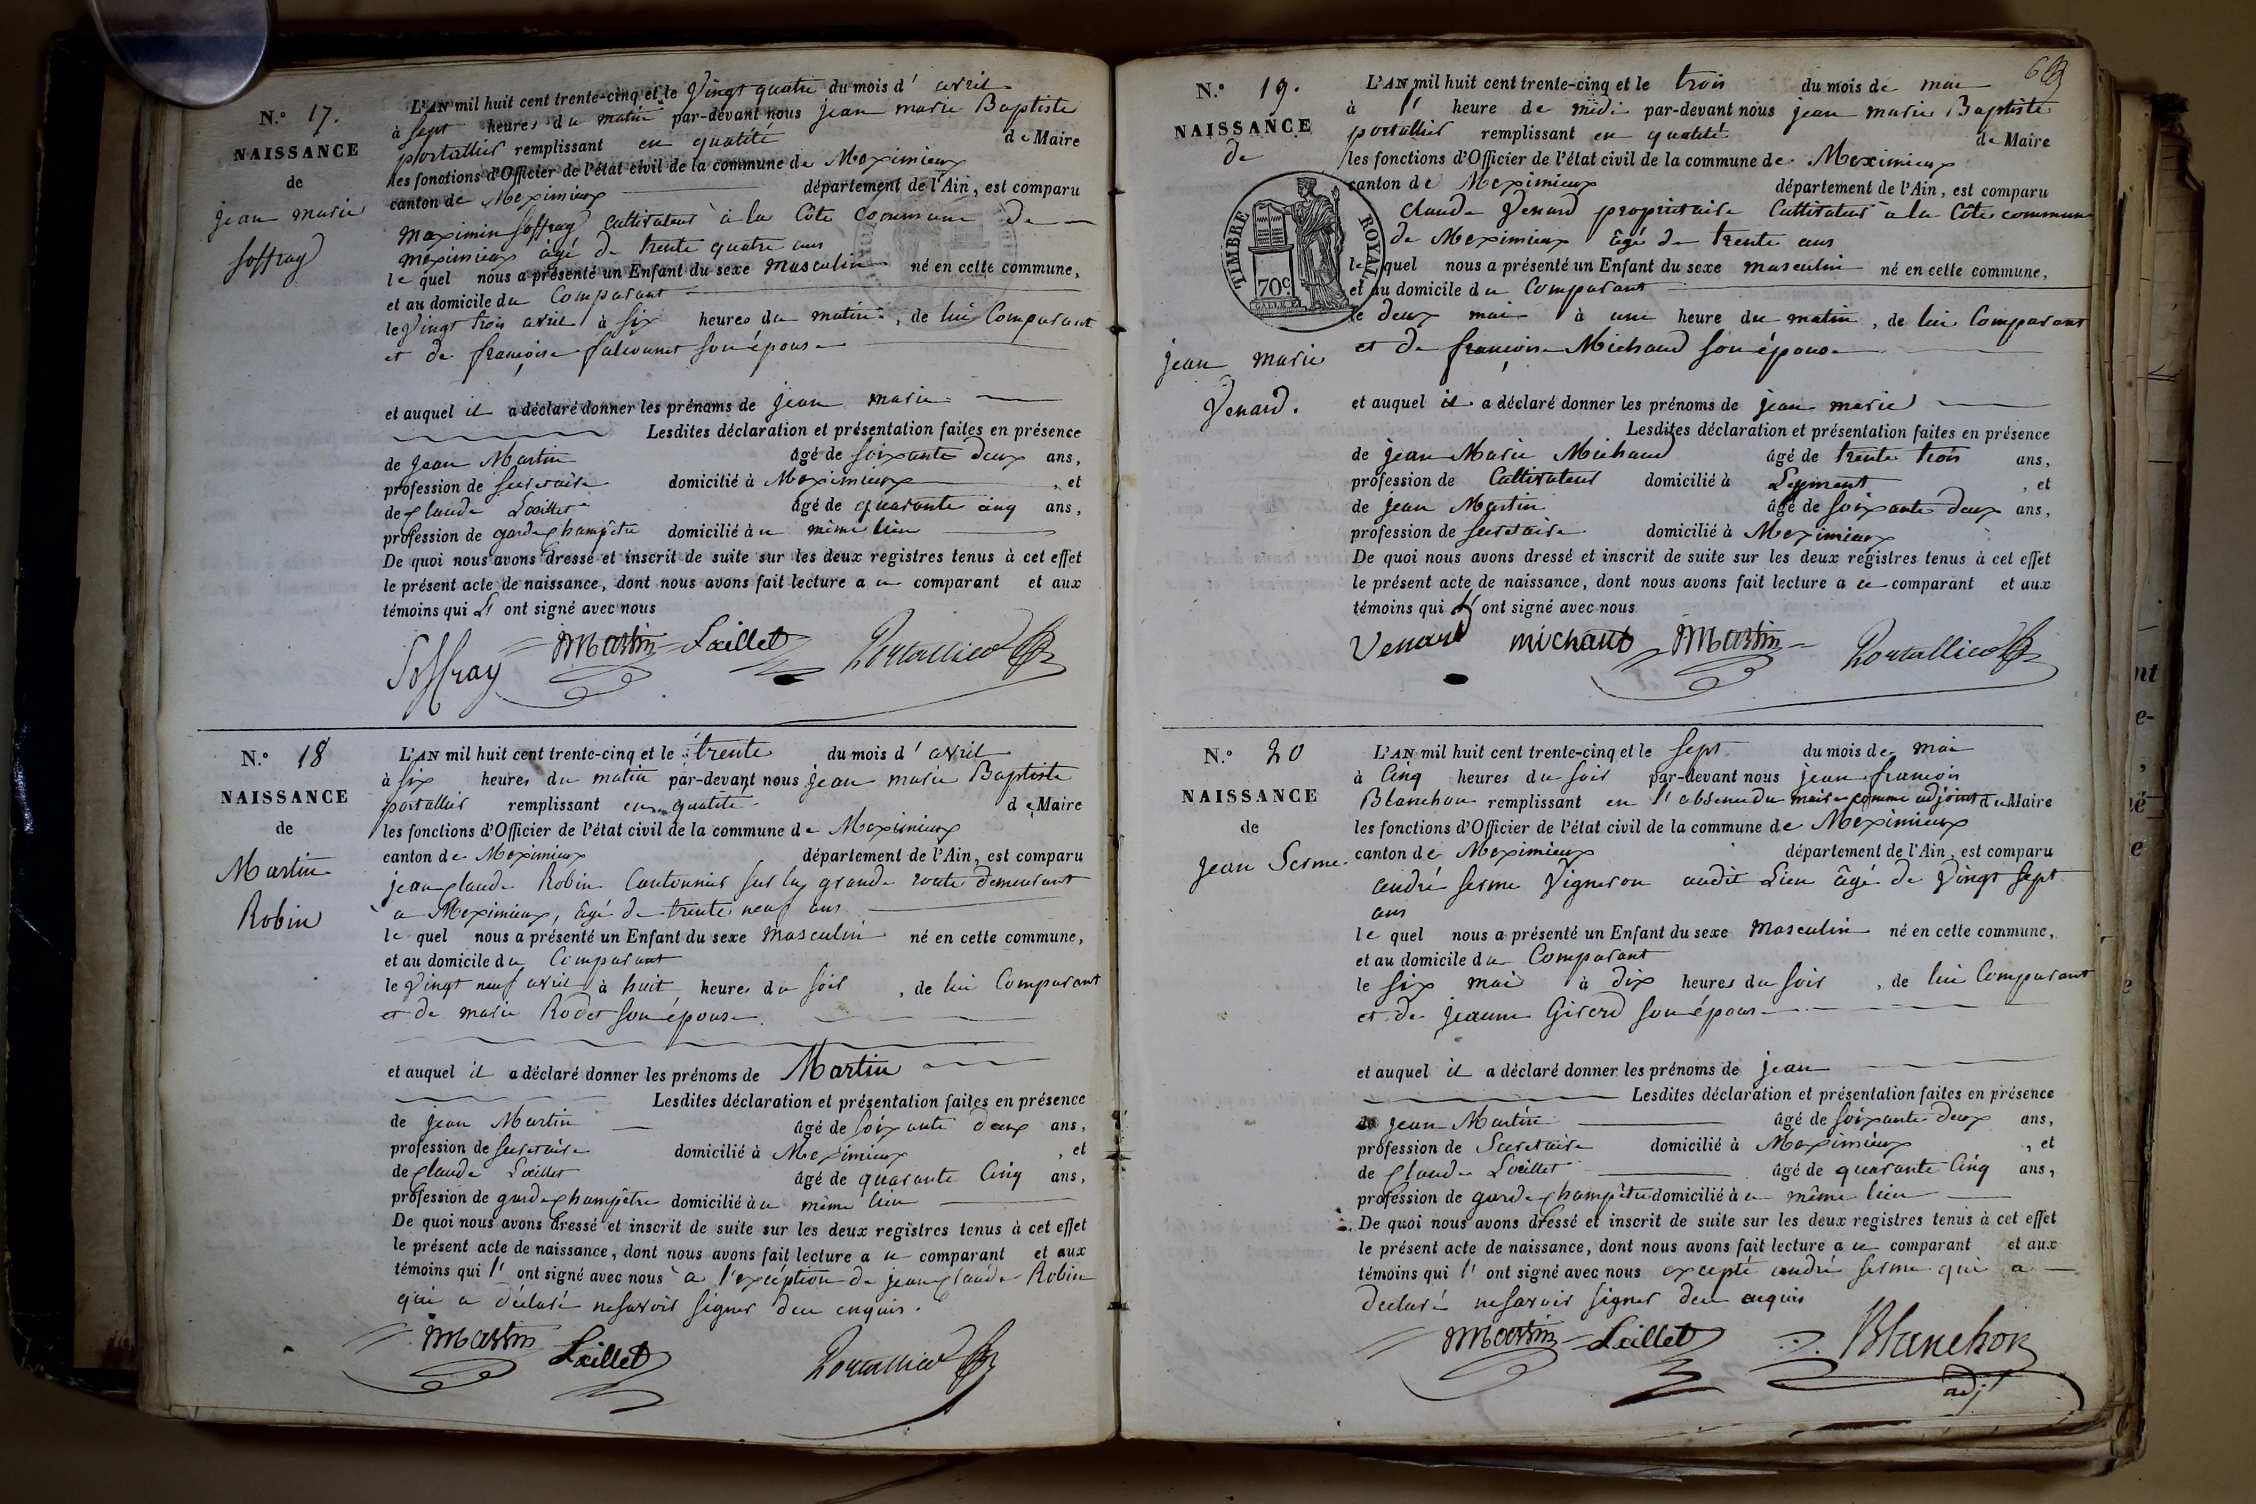 N.° 17.
NAISSANCE
de
jean marie
Soffray
L'AN mil huit cent trente-cinq et le Vingt quatre du mois d' avril
à sept heures du matin par-devant nous jean marie Baptiste
portallier remplissant en qualité de Maire
les fonctions d'Officier de l'état civil de la commune de Meximieux
canton de Meximieux département de l'Ain, est comparu
maximin Soffray Cultivateur à la Côte Commune de
meximieux âgé de trente quatre ans
le quel nous a présenté un Enfant du sexe masculin né en cette commune,
et au domicile du Comparant
le Vingt trois avril à six heures du matin, de lui Comparant
et de françoise son épouse
et auquel il a déclaré donner les prénoms de jean marie
Lesdites déclaration et présentation faites en présence
de jean Martin âgé de soixante deux ans,
profession de secretaire domicilié à Meximieux, et
de Claude Lœillet âgé de quarante cinq ans,
profession de garde Champêtre domicilié à u même lieu
De quoi nous avons dressé et inscrit de suite sur les deux registres tenus à cet effet
le présent acte de naissance, dont nous avons fait lecture a u comparant et aux
témoins qui l' ont signé avec nous
Soffray Martin Lœillet Portallier
N.° 18
NAISSANCE
de
Martin
Robin
L'AN mil huit cent trente-cinq et le trente du mois d' avril
à six heures du matin par-devant nous jean marie Baptiste
portallier remplissant en qualité de Maire
les fonctions d'Officier de l'état civil de la commune de Meximieux
canton de Meximieux département de l'Ain, est comparu
jean Claude Robin Cantonnier sur la grande route demeurant
a Meximieux, âgé de trente neuf ans
le quel nous a présenté un Enfant du sexe masculin né en cette commune,
et au domicile du Comparant
le Vingt neuf avril à huit heures du soir, de lui Comparant
et de marie Rodet son épouse
et auquel il a déclaré donner les prénoms de Martin
Lesdites déclaration et présentation faites en présence
de jean Martin âgé de soixante deux ans,
profession de secretaire domicilié à Meximieux, et
de Claude Lœillet âgé de quarante Cinq ans,
profession de garde Champêtre domicilié à u même lieu
De quoi nous avons dressé et inscrit de suite sur les deux registres tenus à cet effet
le présent acte de naissance, dont nous avons fait lecture a u comparant et aux
témoins qui l' ont signé avec nous a l'exception de jean Claude Robin
qui a déclaré ne savoir signer de ce enquis.
Martin Lœillet Portallier
N.° 19.
NAISSANCE
de
TIMBRE ROYAL
70c
jean marie
Venard.
L'AN mil huit cent trente-cinq et le trois du mois de mai
à 1' heure de midi par-devant nous jean marie Baptiste
portallier remplissant en qualité de Maire
les fonctions d'Officier de l'état civil de la commune de Meximieux
canton de Meximieux département de l'Ain, est comparu
Claude Venard propriétaire Cultivateur a la Côte commune
de Meximieux âgé de trente ans
le quel nous a présenté un Enfant du sexe masculin né en cette commune,
et au domicile du Comparant
le deux mai à une heure du matin, de lui Comparant
et de françoise Michaud son épouse
et auquel il a déclaré donner les prénoms de jean marie
Lesdites déclaration et présentation faites en présence
de jean Marie Michaud âgé de trente trois ans,
profession de Cultivateur domicilié à Leyment, et
de jean Martin âgé de soixante deux ans,
profession de secretaire domicilié à Meximieux
De quoi nous avons dressé et inscrit de suite sur les deux registres tenus à cet effet
le présent acte de naissance, dont nous avons fait lecture a u comparant et aux
témoins qui l' ont signé avec nous
Venard michaud Martin Portallier
N.° 20
NAISSANCE
de
jean Serme.
L'AN mil huit cent trente-cinq et le sept du mois de mai
à Cinq heures du soir par-devant nous jean françois
Blanchon remplissant en l'absence du maire comme adjoint du Maire
les fonctions d'Officier de l'état civil de la commune de Meximieux
canton de Meximieux département de l'Ain, est comparu
andré serme Vigneron audit Lieu âgé de Vingt sept
ans
le quel nous a présenté un Enfant du sexe Masculin né en cette commune,
et au domicile du Comparant
le six mai à dix heures du soir, de lui Comparant
et de jeanne Giserd son épouse
et auquel il a déclaré donner les prénoms de jean
Lesdites déclaration et présentation faites en présence
de jean Martin âgé de soixante deux ans,
profession de Secretaire domicilié à Meximieux, et
de Claude Lœillet âgé de quarante Cinq ans,
profession de garde Champêtre domicilié à u même lieu
De quoi nous avons dressé et inscrit de suite sur les deux registres tenus à cet effet
le présent acte de naissance, dont nous avons fait lecture a u comparant et aux
témoins qui l' ont signé avec nous excepté andré serme qui a
declaré ne savoir signer de ce enquis
Martin Lœillet Blanchon
adj.t